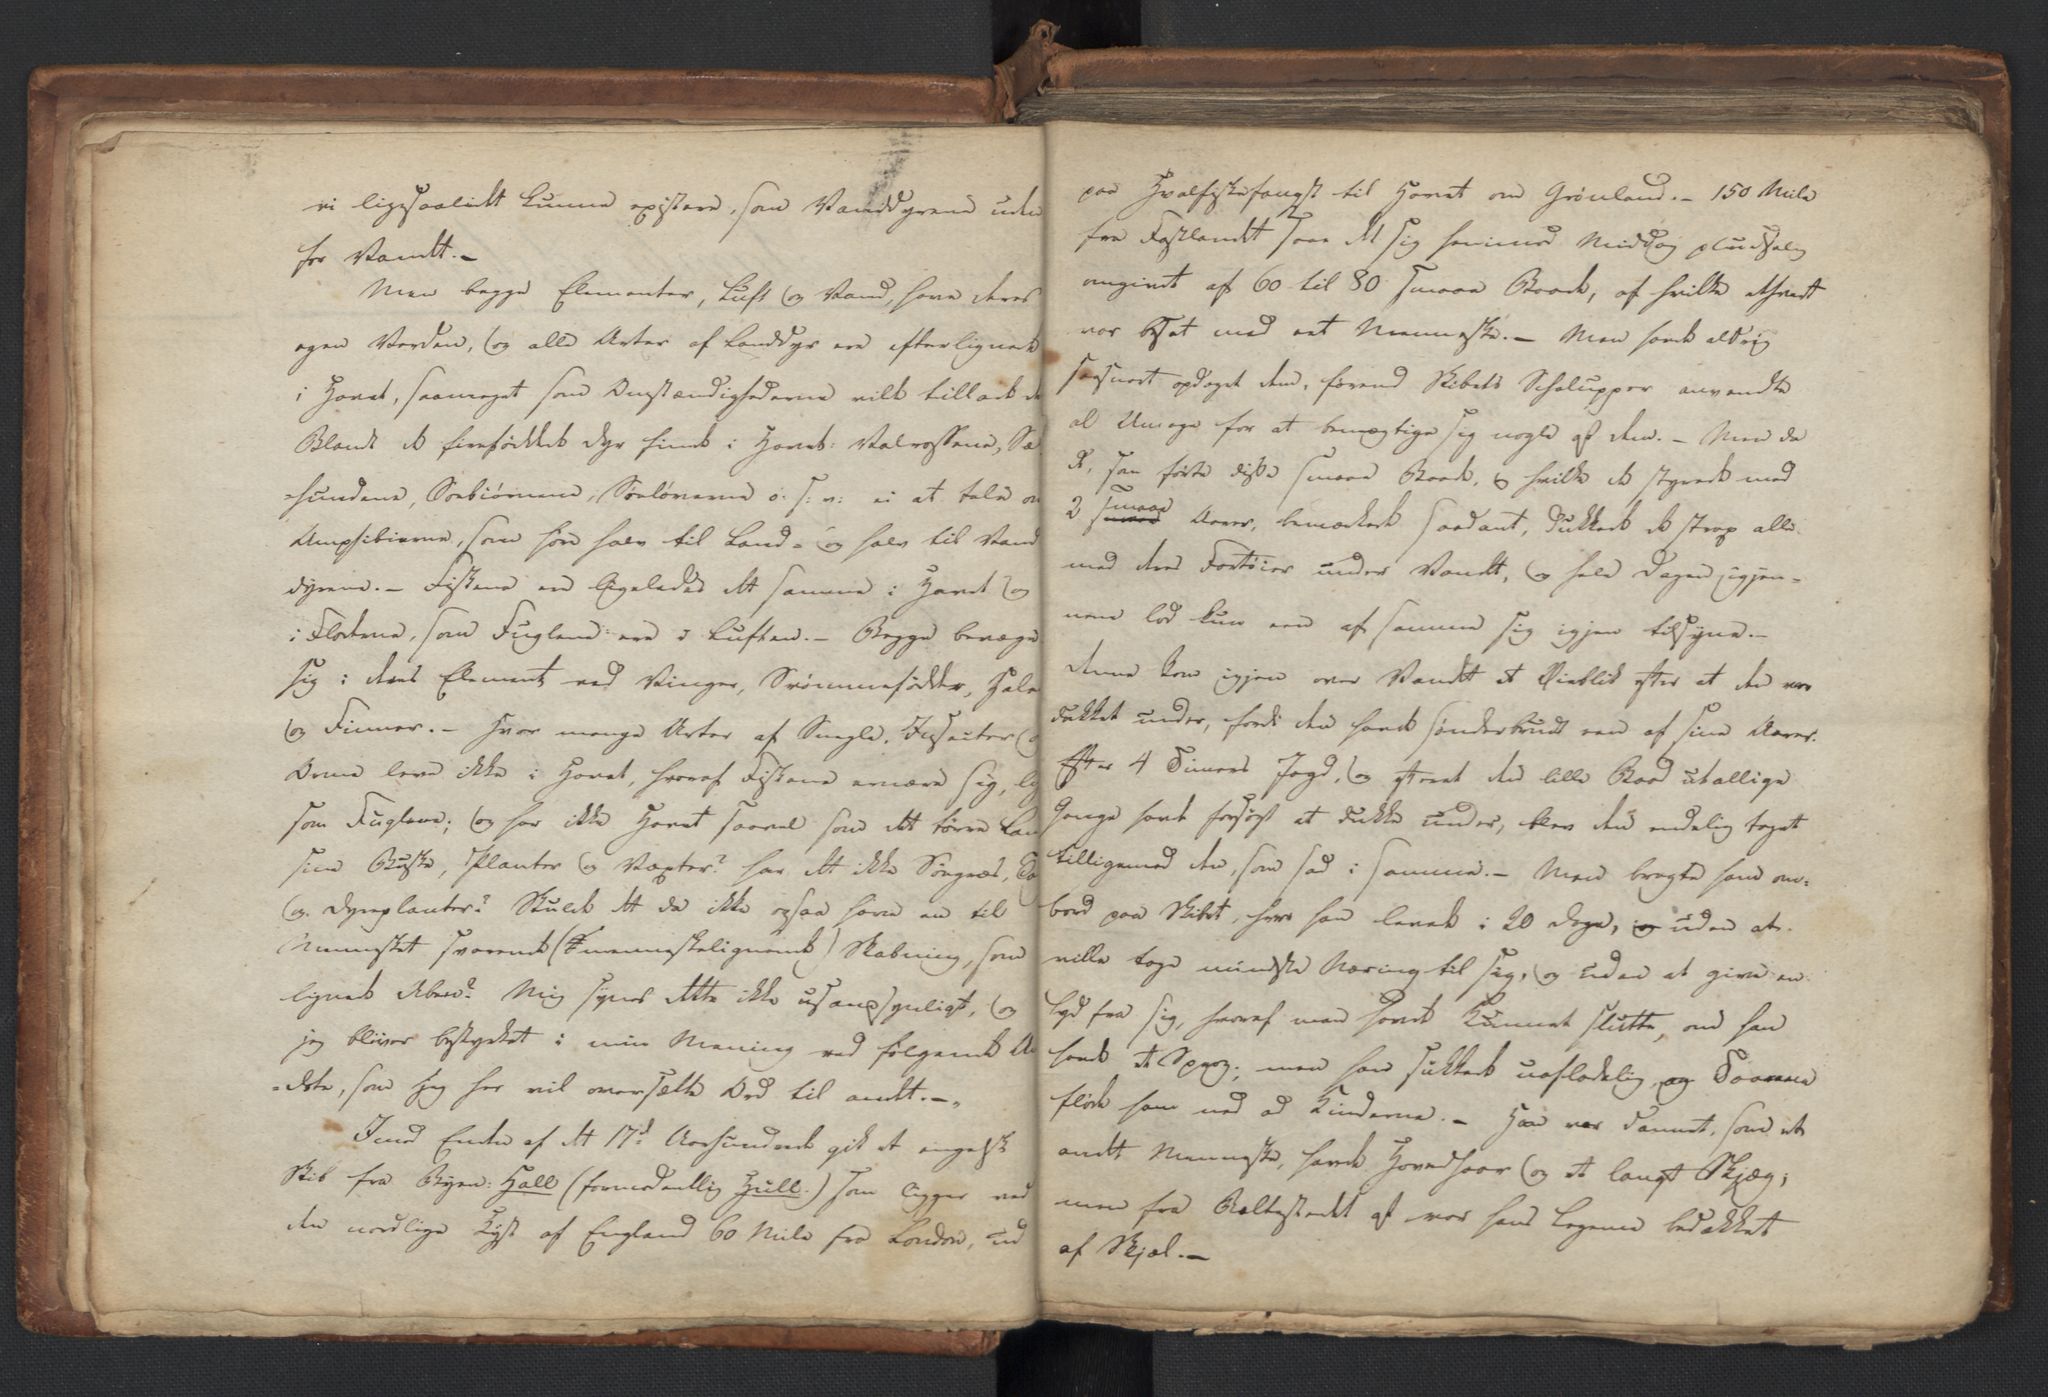 vi ligesaalidt kunne existere, som Vanddyrene uden
for Vandt.—
Men begge Elementer, Luft og Vand, have deres
egen Verden, og alle Arter af Landdyr ere efterlignede
i Havet, saameget som Omstændighederne vilde tillade de
Blandt de fireføddede Dyr finde i Havet: Valrossene, Sæ=
=hundene, Søebiørnene, Søeløverne o: s: v: ei at tale om
Amphibierne, som høre halv til Land- og halv til Vand
dyrene.— Fiskene ere ligeledes det samme i Havet og
i Floderne, som Fuglene ere i Luften.— Begge bevæge
sig i deres Element ved Vinger, Svømmefødder, Hale
og Finner.— Hvor mange Arter af Snegle, Insecter o
Orme leve ikke i Havet, hvoraf Fiskene ernære sig, lig
som Fuglene; og har ikke Havet saavel som det tørre Lan
sine Buske, Planter og Væxter? har det ikke Søegræs, 
og Dyreplanter? Skulde det da ikke ogsaa have en til
Mennesket svarende (menneskelignende) Skabning, som
lignede Aben? Mig synes dette ikke usandsynligt, og
jeg bliver bestyrket i min Mening ved følgende An
=dote, som jeg her vil oversætte Ord til andet.—
Imod Enden af det 17d Aarhundrede gik et engelsk
Skib fra Byen: Hall (formodentlig Hull.) som ligger ved
den nordlige Kyst af England 60 Mile fra London, ud
paa Hvalfiskefangst til Havet om Grønland.— 150 Mile
fra Fastlandet saae det sig henimod Middag pludselig
omgivet af 60 til 80 smaae Baade, af hvilke ethvert
var besat med eet Menneske.— Man havde aldrig
saasnart opdaget dem, førend Skibets Schalupper anvendte
al Umage for at bemægtige sig nogle af dem.— Men da
de, som førte disse smaae Baade, og hvilke de styrede med
2 smaae Aarer, bemærkede saadant, dukkede de strax alle
med deres Fartøier under Vandet, og hele Dagen igjen=
nem lod kun een af samme sig igjen tilsyne.—
Denne kom igjen over Vandet et Øieblik efter at den var
dukket under, fordi den havde sønderbrudt een af sine Aarer.
Efter 4 Timers Jagd, og efterat den lille Baad utallige
Gange havde forsøgt at dukke under, blev den endelig taget
tilligemed den, som sad i samme.— Man bragte ham om=
bord paa Skibet, hvor han levede i 20 Dage, uden at
ville tage mindste Næring til sig, og uden at give en
Lyd fra sig, hvoraf man havde kunnet slutte, om han
havde et Sprog; men han sukkede uafladelig, og Taarerne
flød ham ned ad Kinderne.— Han var dannet, som et
andet Menneske, havde Hovedhaar og et langt Skjæg;
men fra Beltestedet af var hans Legeme bedækket
af Skjæl.—